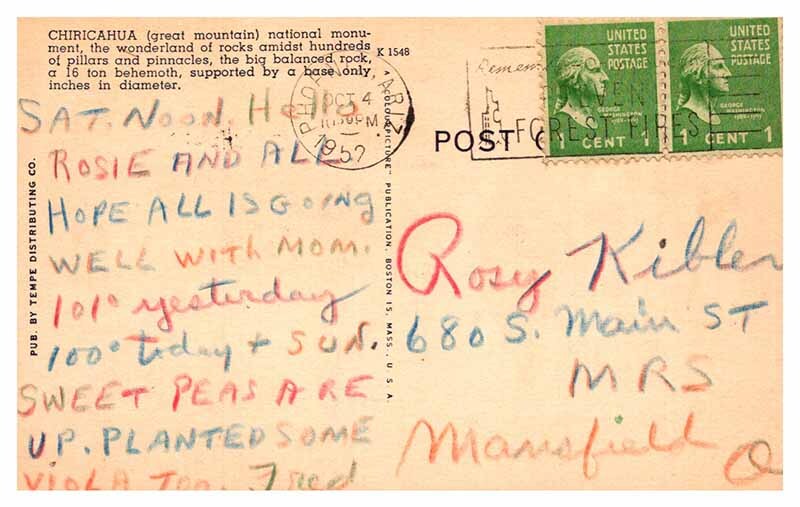 CHIRICAHUA (great mountain) national monu-
ment, the wonderland of rocks amidst hundreds
of pillars and pinnacles, the big balanced rock,
a 16 ton behemoth, supported by a base only,
inches in diameter.
K 1548
SAT. NOON. HELLO
ROSIE AND ALL
HOPE ALL IS GOING
WELL WITH MOM.
101° yesterday
100° today + SUN.
SWEET PEAS ARE
UP. PLANTED SOME
VIOLA TOO. Fred
PUB. BY TEMPE DISTRIBUTING CO.
A "COLOURPICTURE" PUBLICATION, BOSTON 15, MASS., U. S. A.
ARIZ
OCT 4
PM
1952
FOREST FIRES
UNITED
STATES
POSTAGE
GEORGE
WASHINGTON
1 CENT 1
UNITED
STATES
POSTAGE
GEORGE
WASHINGTON
1 CENT 1
POST
Rosy Kibler
680 S. Main ST
MRS
Mansfield O